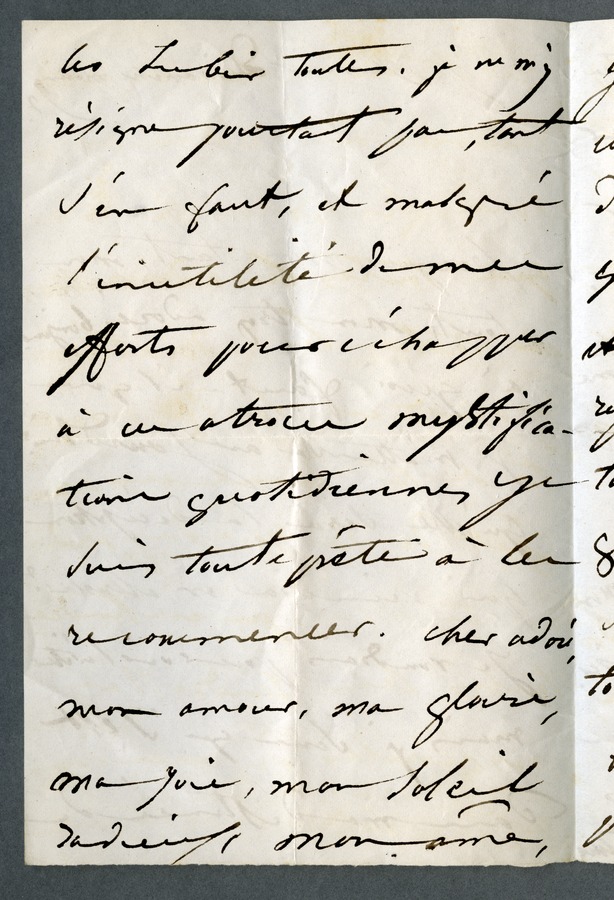 les subir toutes. je ne m'y
résigne pourtant pas, tant
s'en faut, et malgré
l'inutilité de mes
efforts pour échapper
à ces atroces mystifica-
tions quotidiennes, je
suis toute prête à les
recommencer. cher adoré,
mon amour, ma gloire,
ma joie, mon soleil
radieux, mon âme,